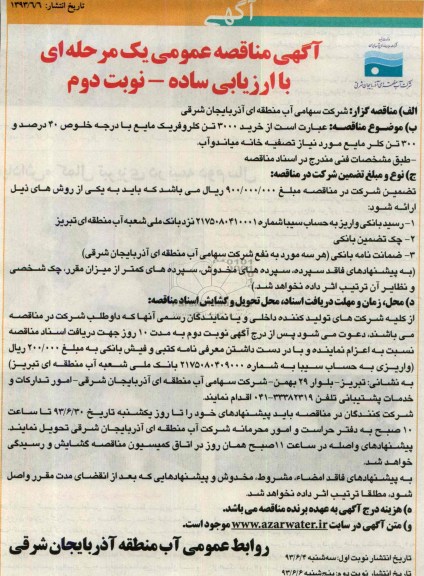 آگهی
تاریخ انتشار: ۱۳۹۳/۶/۶
آگهی مناقصه عمومی یک مرحله ای
با ارزیابی ساده – نوبت دوم
الف) مناقصه گزار: شرکت سهامی آب منطقه ای آذربایجان شرقی
ب) موضوع مناقصه: عبارت است از خرید ۳۰۰۰ تن کلروفریک مایع با درجه خلوص ۴۰ درصد و
۳۰۰ تن کلر مایع مورد نیاز تصفیه خانه میاندوآب.
-طبق مشخصات فنی مندرج در اسناد مناقصه
ج) نوع و مبلغ تضمین شرکت در مناقصه:
تضمین شرکت در مناقصه مبلغ ۹۰۰/۰۰۰/۰۰۰ ریال می باشد که باید به یکی از روش های ذیل
ارائه شود:
۱- رسید بانکی واریز به حساب سیبا شماره ۲۱۷۵۰۸۰۳۱۰۰۰۱ نزد بانک ملی شعبه آب منطقه ای تبریز
۲- چک تضمین بانکی
۳- ضمانت نامه بانکی (هر سه مورد به نفع شرکت سهامی آب منطقه ای آذربایجان شرقی)
(به پیشنهادهای فاقد سپرده، سپرده های مخدوش، سپرده های کمتر از میزان مقرر، چک شخصی
و نظایر آن ترتیب اثر داده نخواهد شد.)
د) محل، زمان و مهلت دریافت اسناد، محل تحویل و گشایش اسناد مناقصه:
از کلیه شرکت های تولید کننده داخلی و یا نمایندگان رسمی آنها که داوطلب شرکت در مناقصه
می باشند، دعوت می شود پس از درج آگهی نوبت دوم به مدت ۱۰ روز جهت دریافت اسناد مناقصه
نسبت به اعزام نماینده و با در دست داشتن معرفی نامه کتبی و فیش بانکی به مبلغ ۲۰۰/۰۰۰ ریال
(واریزی به حساب سیبا به شماره ۲۱۷۵۰۸۰۳۰۹۰۰۰ بانک ملی شعبه آب منطقه ای تبریز)
به نشانی: تبریز- بلوار ۲۹ بهمن- شرکت سهامی آب منطقه ای آذربایجان شرقی- امور تدارکات و
خدمات پشتیبانی تلفن ۳۳۳۸۲۳۱۹-۰۴۱ اقدام نمایند.
شرکت کنندگان در مناقصه باید پیشنهادهای خود را تا روز یکشنبه تاریخ ۹۳/۶/۳۰ تا ساعت
۱۰ صبح به دفتر حراست و امور محرمانه شرکت آب منطقه ای آذربایجان شرقی تحویل نمایند.
پیشنهادهای واصله در ساعت ۱۱ صبح همان روز در اتاق کمیسیون مناقصه گشایش و رسیدگی
خواهد شد.
به پیشنهادهای فاقد امضاء، مشروط، مخدوش و پیشنهادهایی که بعد از انقضای مدت مقرر واصل
شود، مطلقا ترتیب اثر داده نخواهد شد.
ه) هزینه درج آگهی به عهده برنده مناقصه می باشد.
و) متن آگهی در سایت www.azarwater.ir موجود است.
روابط عمومی آب منطقه آذربایجان شرقی
تاریخ انتشار نوبت اول: سه شنبه ۹۳/۶/۴
تاریخ انتشار نوبت دوم: پنج شنبه ۹۳/۶/۶